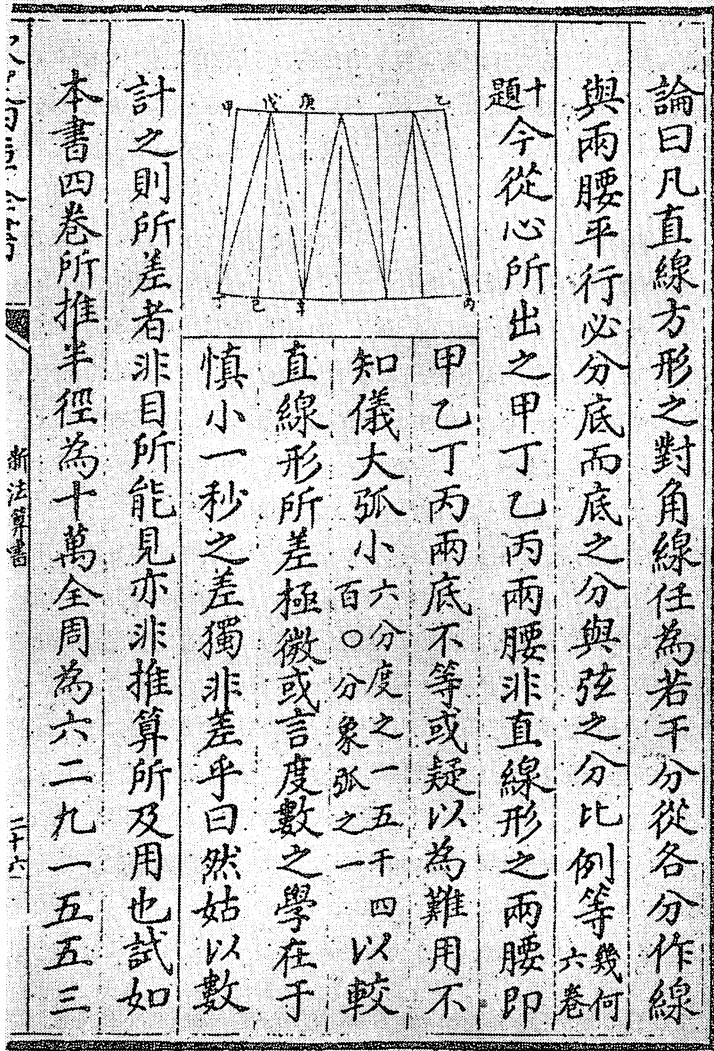 論曰凡直線方形之對角線任為若干分從各分作線
與兩腰平行必分底而底之分與弦之分比例等幾何六卷
十題今從心所出之甲丁乙丙兩腰非直線形之兩腰即
甲乙丁丙兩底不等或疑以為難用不
知儀大弧小六分度之一五千四百〇分象弧之一以較
直線形所差極微或言度數之學在于
慎小一秒之差獨非差乎曰然姑以數
計之則所差者非目所能見亦非推算所及用也試如
本書四卷所推半徑為十萬全周為六二九一五五三
甲
戊
庚
乙
丁
己
辛
丙
新法算書
二十六